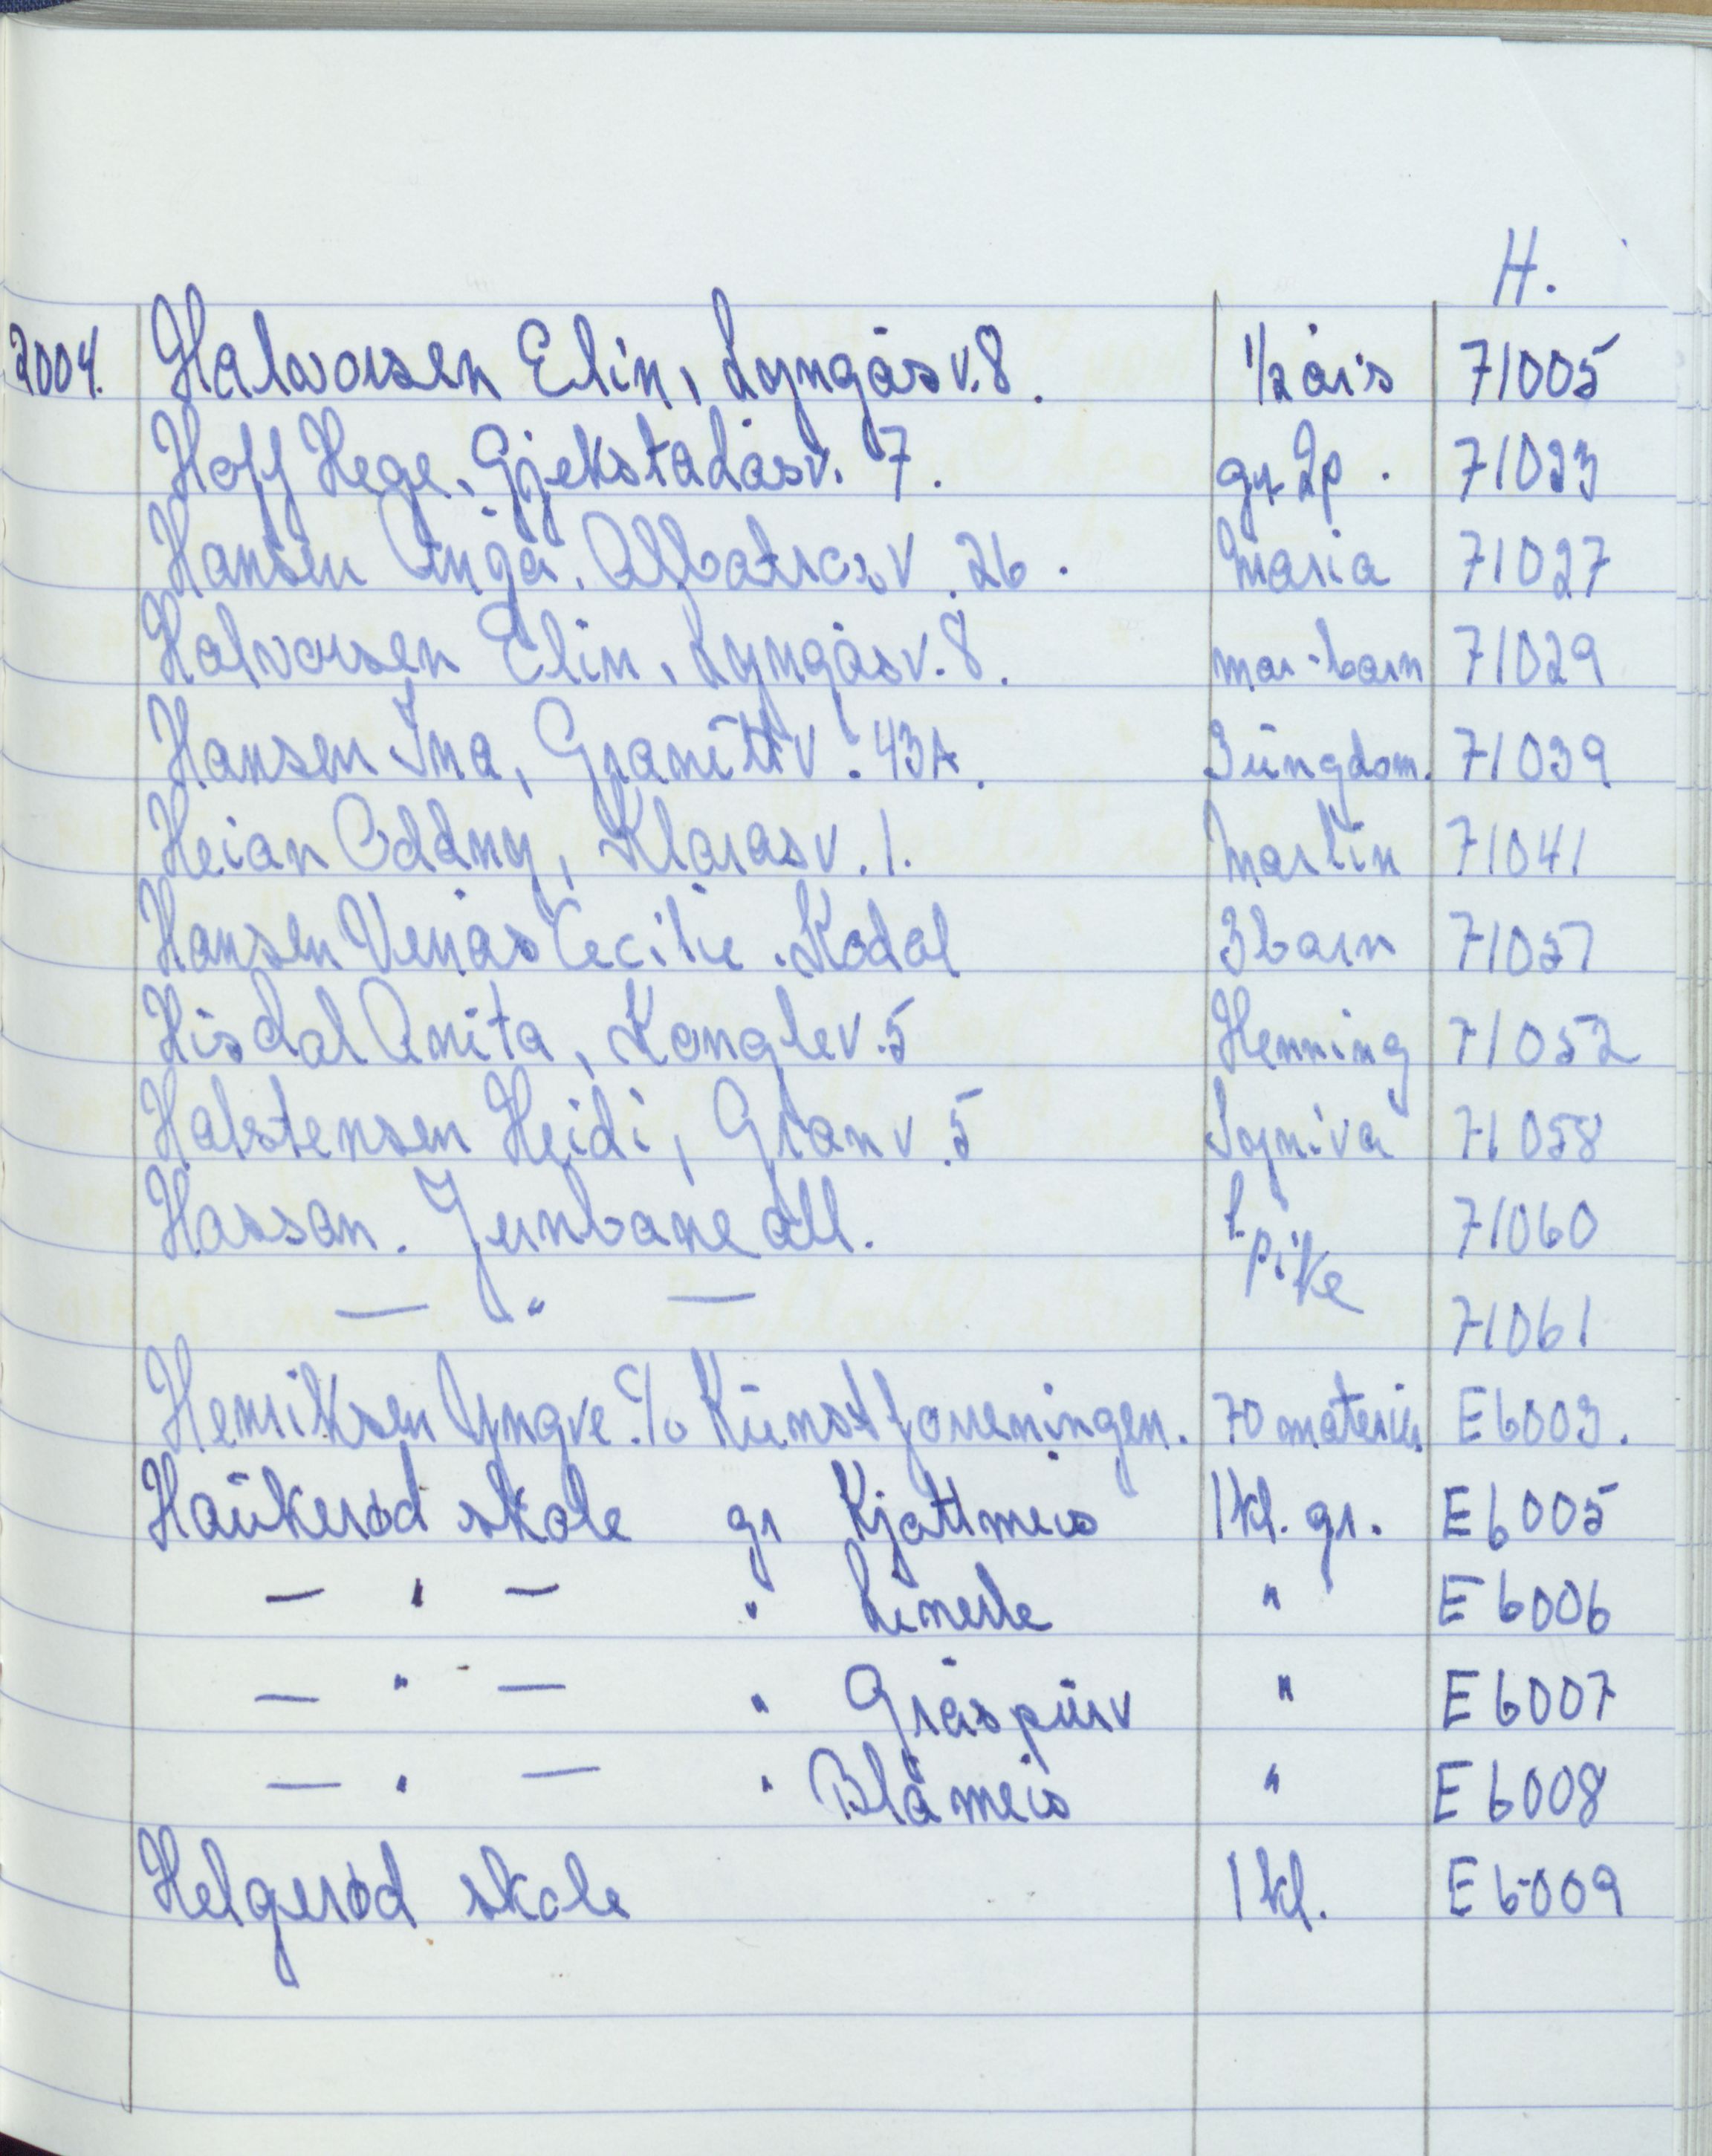 H.
2004. Halvorsen Elin, Lyngåsv. 8. 1/2 års 71005
Hoff Hege, Gjekstadåsv. 7. gr 2p. 71023
Hansen Inga, Albatrosv. 26. Maria 71027
Halvorsen Elin, Lyngåsv. 8. mor-barn 71029
Hansen Ina, Granittv. 43A. 3 ungdom. 71039
Heian Oddny, Klarasv. 1. Martin 71041
Hansen Venås Cecilie. Kodal 3 barn 71051
Hisdal Anita, Konglev. 5 Henning 71052
Halstensen Heidi, Granv. 5 Syniva 71058
Hassan. Jernbaneall. 1. pike 71060
— " — 71061
Henriksen Yngve c/o Kunstforreningen. 70 malerier E6003.
Haukerød skole gr Kjøttmeis 1 kl. gr. E6005
— " — " Linerle " E6006
— " — " Gråspurv " E6007
— " — " Blåmeis " E6008
Helgerød skole 1 kl. E6009